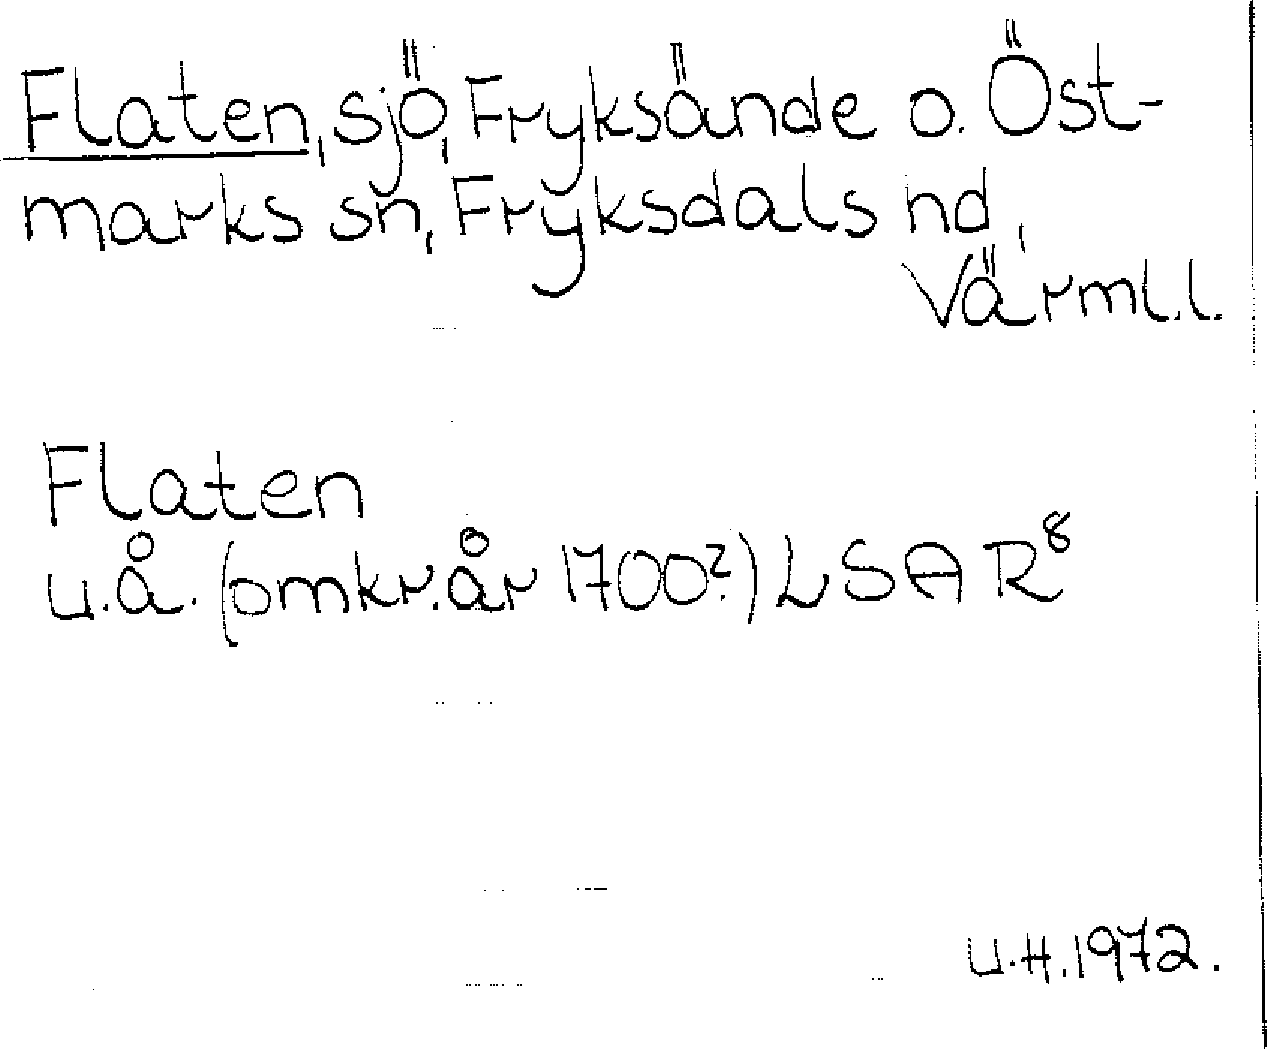 Flaten, sjö, Fryksände o. Öst-
marks sn, Fryksdals hd,
Värml.l.
Flaten
u.å. (omkr. år 1700?) LSA R⁸
U.H. 1972.